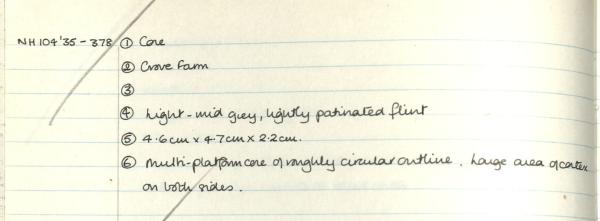 NH104'35-378 ① Core
② Crove Farm
③
④ Light-mid grey, lightly patinated flint
⑤ 4.6cm x 4.7cm x 2.2cm.
⑥ Multi-platform core of roughly circular outline. Large area of cortex
on both sides.